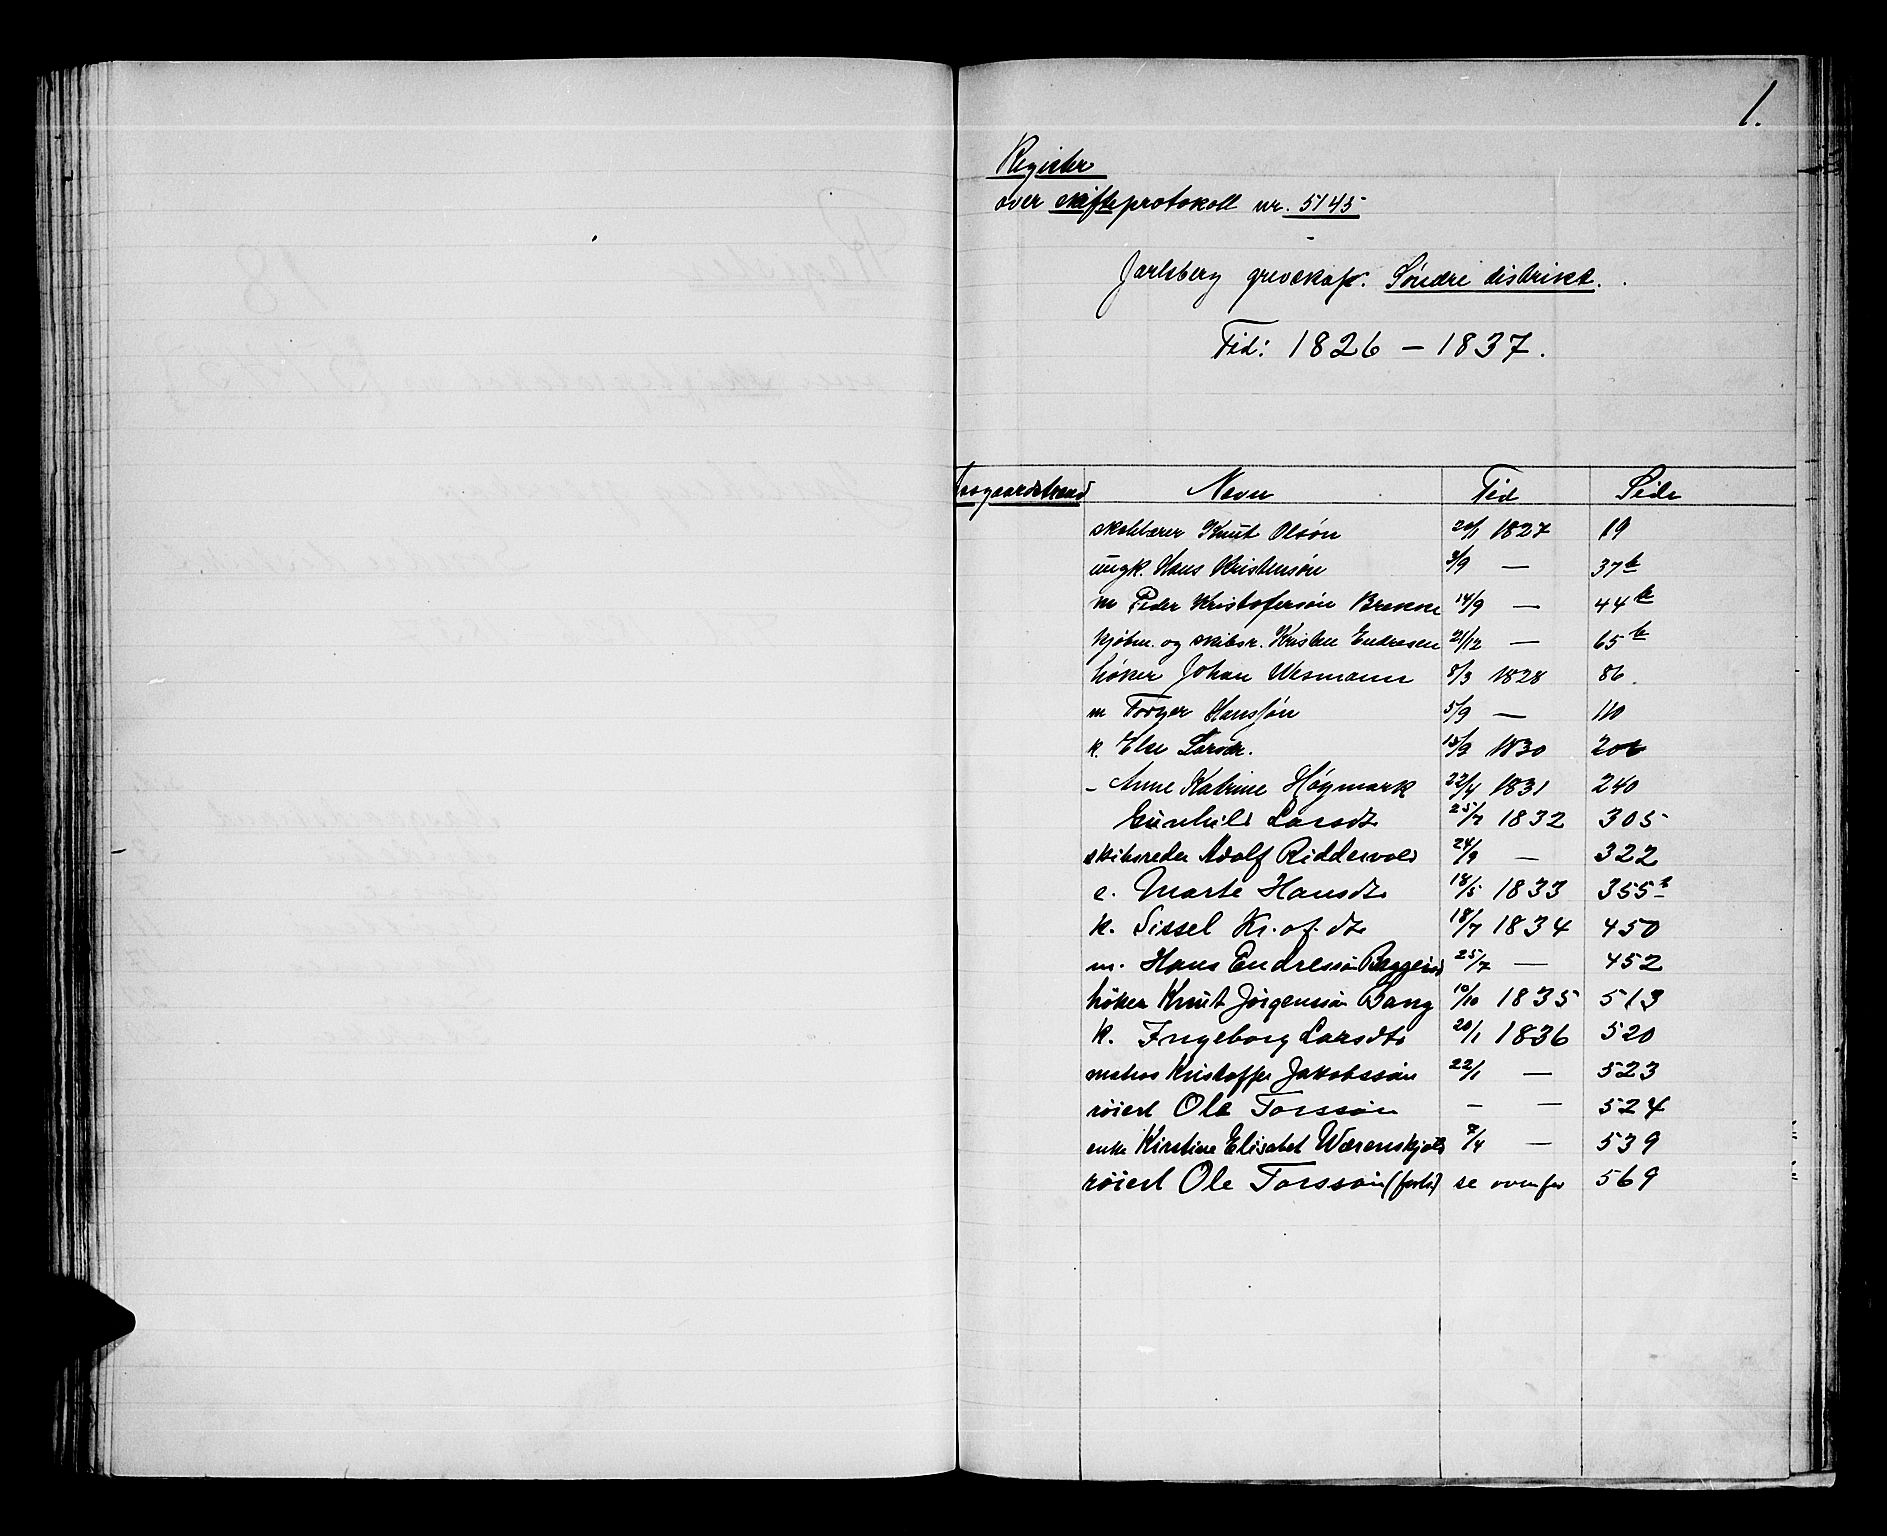 1.
Register
over skifteprotokoll nr. 5145
Jarlsberg grevskap. Söndre distrikt.
Tid: 1826 – 1837.
Aasgaardstrand Navn Tid Side
Knut Olsön 20/1 1827 19
ungk. Hans Kristensön 3/9 — 37b
m Peder Kristofersön Brekke 14/9 — 44b
kjöbm. og skibsr. Kristen Endresen 21/12 — 65b
höker Johan Wesmann 8/3 1828 86.
m Torger Hanssön 5/9 — 110
k. Else Larsdr. 15/9 1830 206
– Anne Katrine Högmark 22/4 1831 240
Gunhild Larsdt 25/7 1832 305
skibsreder Adolf Riddervold 24/9 — 322
e. Marte Hansdt 18/5 1833 355b
k. Sissel Kr.of.dt 18/7 1834 450
m. Hans Endressön 25/7 — 452
höker Knut Jörgenssön Bang 10/10 1835 513
k. Ingeborg Larsdt 20/1 1836 520
matros Kristoffer Jakobssön 22/1 — 523
röiert Ole Torssön – — 524
enke Kirstine Elisabet Wærenskjold 7/4 — 539
röiert Ole Torssön (forts) se ovenfor 569